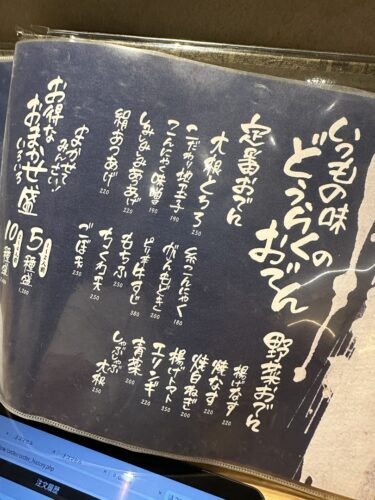 いつもの味
どうらくの
おでん
定番おでん
大根とろろ
250
こだわり地玉子
190
こんにゃく味噌
190
しみしみあつあげ
絹あつあげ
220
糸こんにゃく
180
がんもどき
200
ピリ辛牛すじ
380
もちふ
250
ちくわ天
250
ごぼ天
250
野菜おでん
揚げなす
220
焼なす
220
焼白ねぎ
200
揚げトマト
250
エリンギ
220
青菜
220
しゃぶしゃぶ大根
350
お得な
おまかせ盛
いろいろ
まかせて
みんさい!
5種盛
10種盛
注文履歴